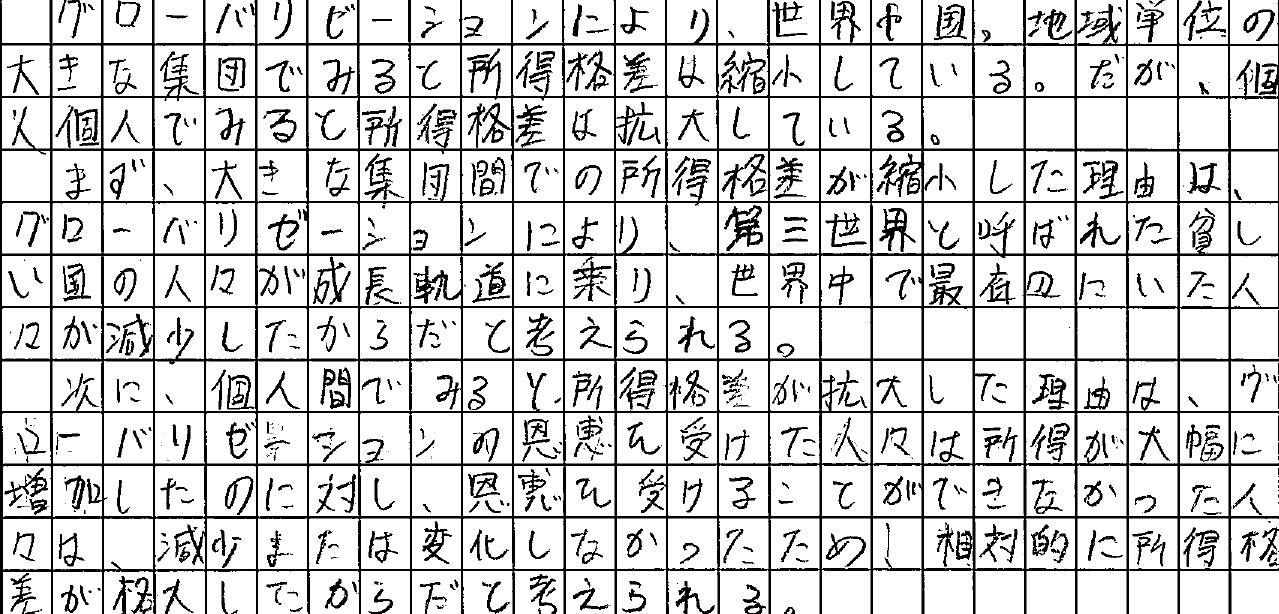 グローバリゼーションにより、世界中国。地域単位の
大きな集団でみると所得格差は縮小している。だが、個
人個人でみると所得格差は拡大している。
まず、大きな集団間での所得格差が縮小した理由は、
グローバリゼーションにより、第三世界と呼ばれた貧し
い国の人々が成長軌道に乗り、世界中で最底辺にいた人
々が減少したからだと考えられる。
次に、個人間でみると、所得格差が拡大した理由は、グ
ローバリゼーションの恩恵を受けた人々は所得が大幅に
増加したのに対し、恩恵を受けることができなかった人
々は、減少または変化しなかったため、相対的に所得格
差が格大してたからだと考えられる。